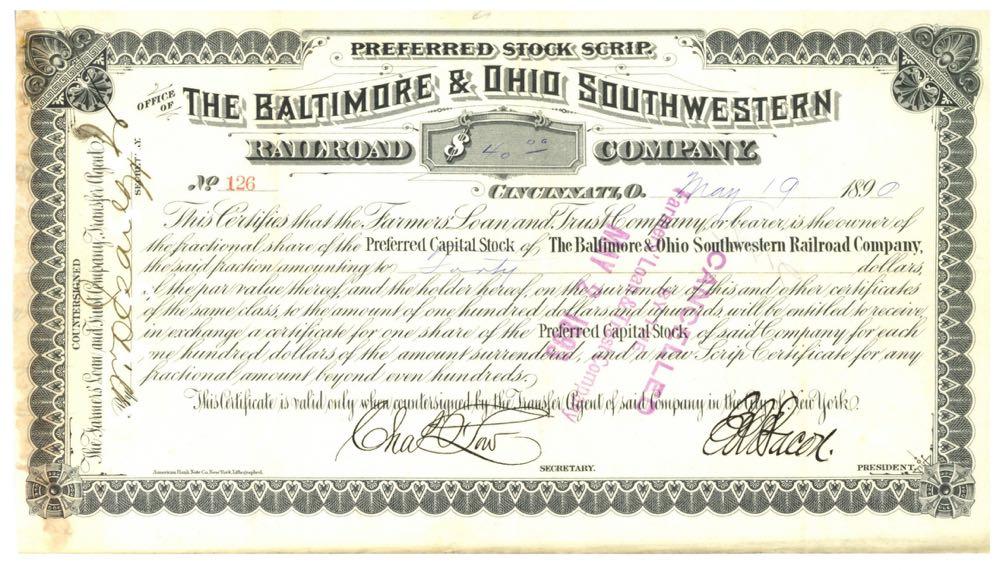 PREFERRED STOCK SCRIP.
OFFICE OF
THE BALTIMORE & OHIO SOUTHWESTERN
RAILROAD $ 40 00 COMPANY.
No 126
CINCINNATI, O. May 19 1890
This Certifies that the Farmers' Loan and Trust Company, or bearer, is the owner of
the fractional share of the Preferred Capital Stock of The Baltimore & Ohio Southwestern Railroad Company,
the said fraction amounting to Forty dollars,
of the par value thereof, and the holder hereof, on the surrender of this and other certificates
of the same class, to the amount of one hundred dollars or upwards will be entitled to receive,
in exchange a certificate for one share of the Preferred Capital Stock of said Company for each
one hundred dollars of the amount surrendered, and a new Scrip Certificate for any
fractional amount beyond even hundreds.
This Certificate is valid only when countersigned by the Transfer Agent of said Company in the City of New York.
SECRETARY.
PRESIDENT.
American Bank Note Co. New York, Lithographed.
COUNTERSIGNED
The Farmers' Loan and Trust Company, Transfer Agent
SECRET'Y.
CANCELLED
BY THE
Farmers' Loan & Trust Company
MAY 2 1893